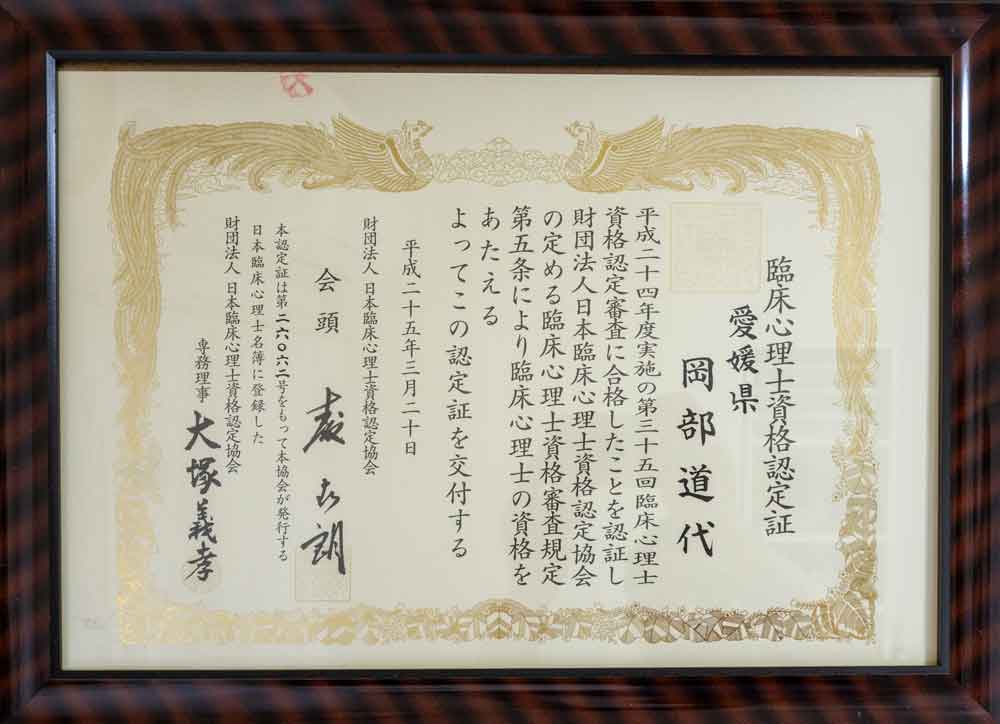 臨床心理士資格認定証
愛媛県
岡部道代
平成二十四年度実施の第三十五回臨床心理士
資格認定審査に合格したことを認証し
財団法人日本臨床心理士資格認定協会
の定める臨床心理士資格審査規定
第五条により臨床心理士の資格を
あたえる
よってこの認定証を交付する
平成二十五年三月二十日
財団法人 日本臨床心理士資格認定協会
会頭
本認定証は第二六〇六二号をもって本協会が発行する
日本臨床心理士名簿に登録した
財団法人 日本臨床心理士資格認定協会
専務理事 大塚義孝